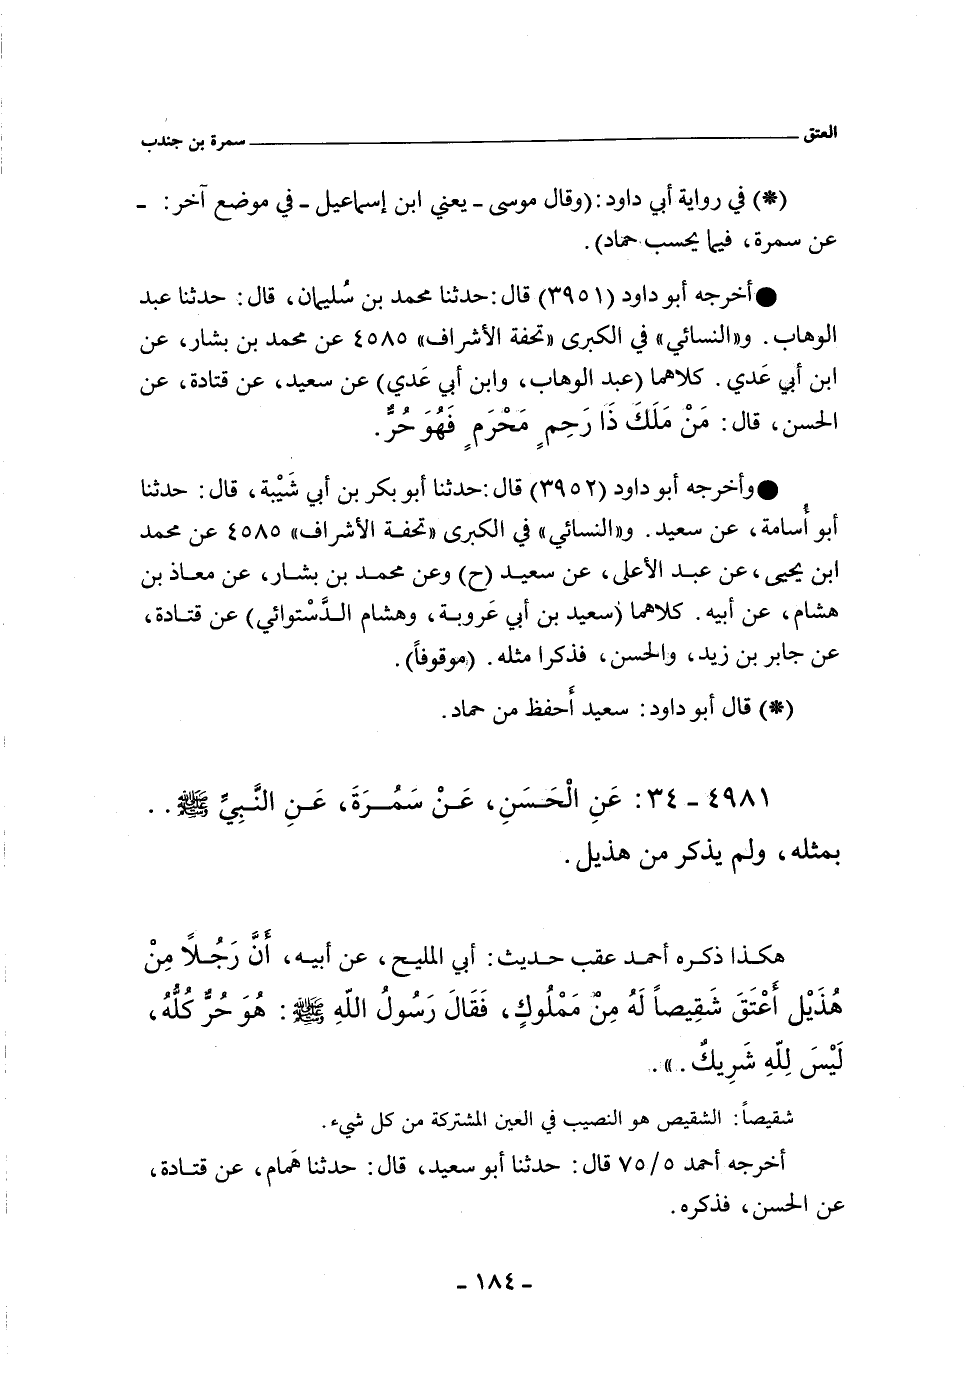 العتق ــــــــــ سمرة بن جندب
(*) في رواية أبي داود: (وقال موسى - يعني ابن إسماعيل - في موضع آخر: -
عن سمرة، فيما يحسب حماد).
● أخرجه أبو داود (٣٩٥١) قال: حدثنا محمد بن سُليمان، قال: حدثنا عبد
الوهاب. و«النسائي» في الكبرى «تحفة الأشراف» ٤٥٨٥ عن محمد بن بشار، عن
ابن أبي عَدي. كلاهما (عبد الوهاب، وابن أبي عَدي) عن سعيد، عن قتادة، عن
الحسن، قال: مَنْ مَلَكَ ذَا رَحِمٍ مَحْرَمٍ فَهُوَ حُرٌّ.
● وأخرجه أبو داود (٣٩٥٢) قال: حدثنا أبو بكر بن أبي شَيْبة، قال: حدثنا
أبو أُسامة، عن سعيد. و«النسائي» في الكبرى «تحفة الأشراف» ٤٥٨٥ عن محمد
ابن يحيى، عن عبد الأعلى، عن سعيد (ح) وعن محمد بن بشار، عن معاذ بن
هشام، عن أبيه. كلاهما (سعيد بن أبي عَروبة، وهشام الدَّسْتوائي) عن قتادة،
عن جابر بن زيد، والحسن، فذكرا مثله. (موقوفاً).
(*) قال أبو داود: سعيد أَحفظ من حماد.
٤٩٨١ - ٣٤: عَنِ الْحَسَنِ، عَنْ سَمُرَةَ، عَنِ النَّبِيِّ ﷺ. .
بمثله، ولم يذكر من هذيل.
هكذا ذكره أحمد عقب حديث: أبي المليح، عن أبيه، أَنَّ رَجُلاً مِنْ
هُذَيْلٍ أَعْتَقَ شَقِيصاً لَهُ مِنْ مَمْلُوكٍ، فَقَالَ رَسُولُ اللّهِ ﷺ: هُوَ حُرٌّ كُلُّهُ،
لَيْسَ لِلّهِ شَرِيكٌ. ».
شقيصاً: الشقيص هو النصيب في العين المشتركة من كل شيء.
أخرجه أحمد ٧٥/٥ قال: حدثنا أبو سعيد، قال: حدثنا هَمام، عن قتادة،
عن الحسن، فذكره.
- ١٨٤ -